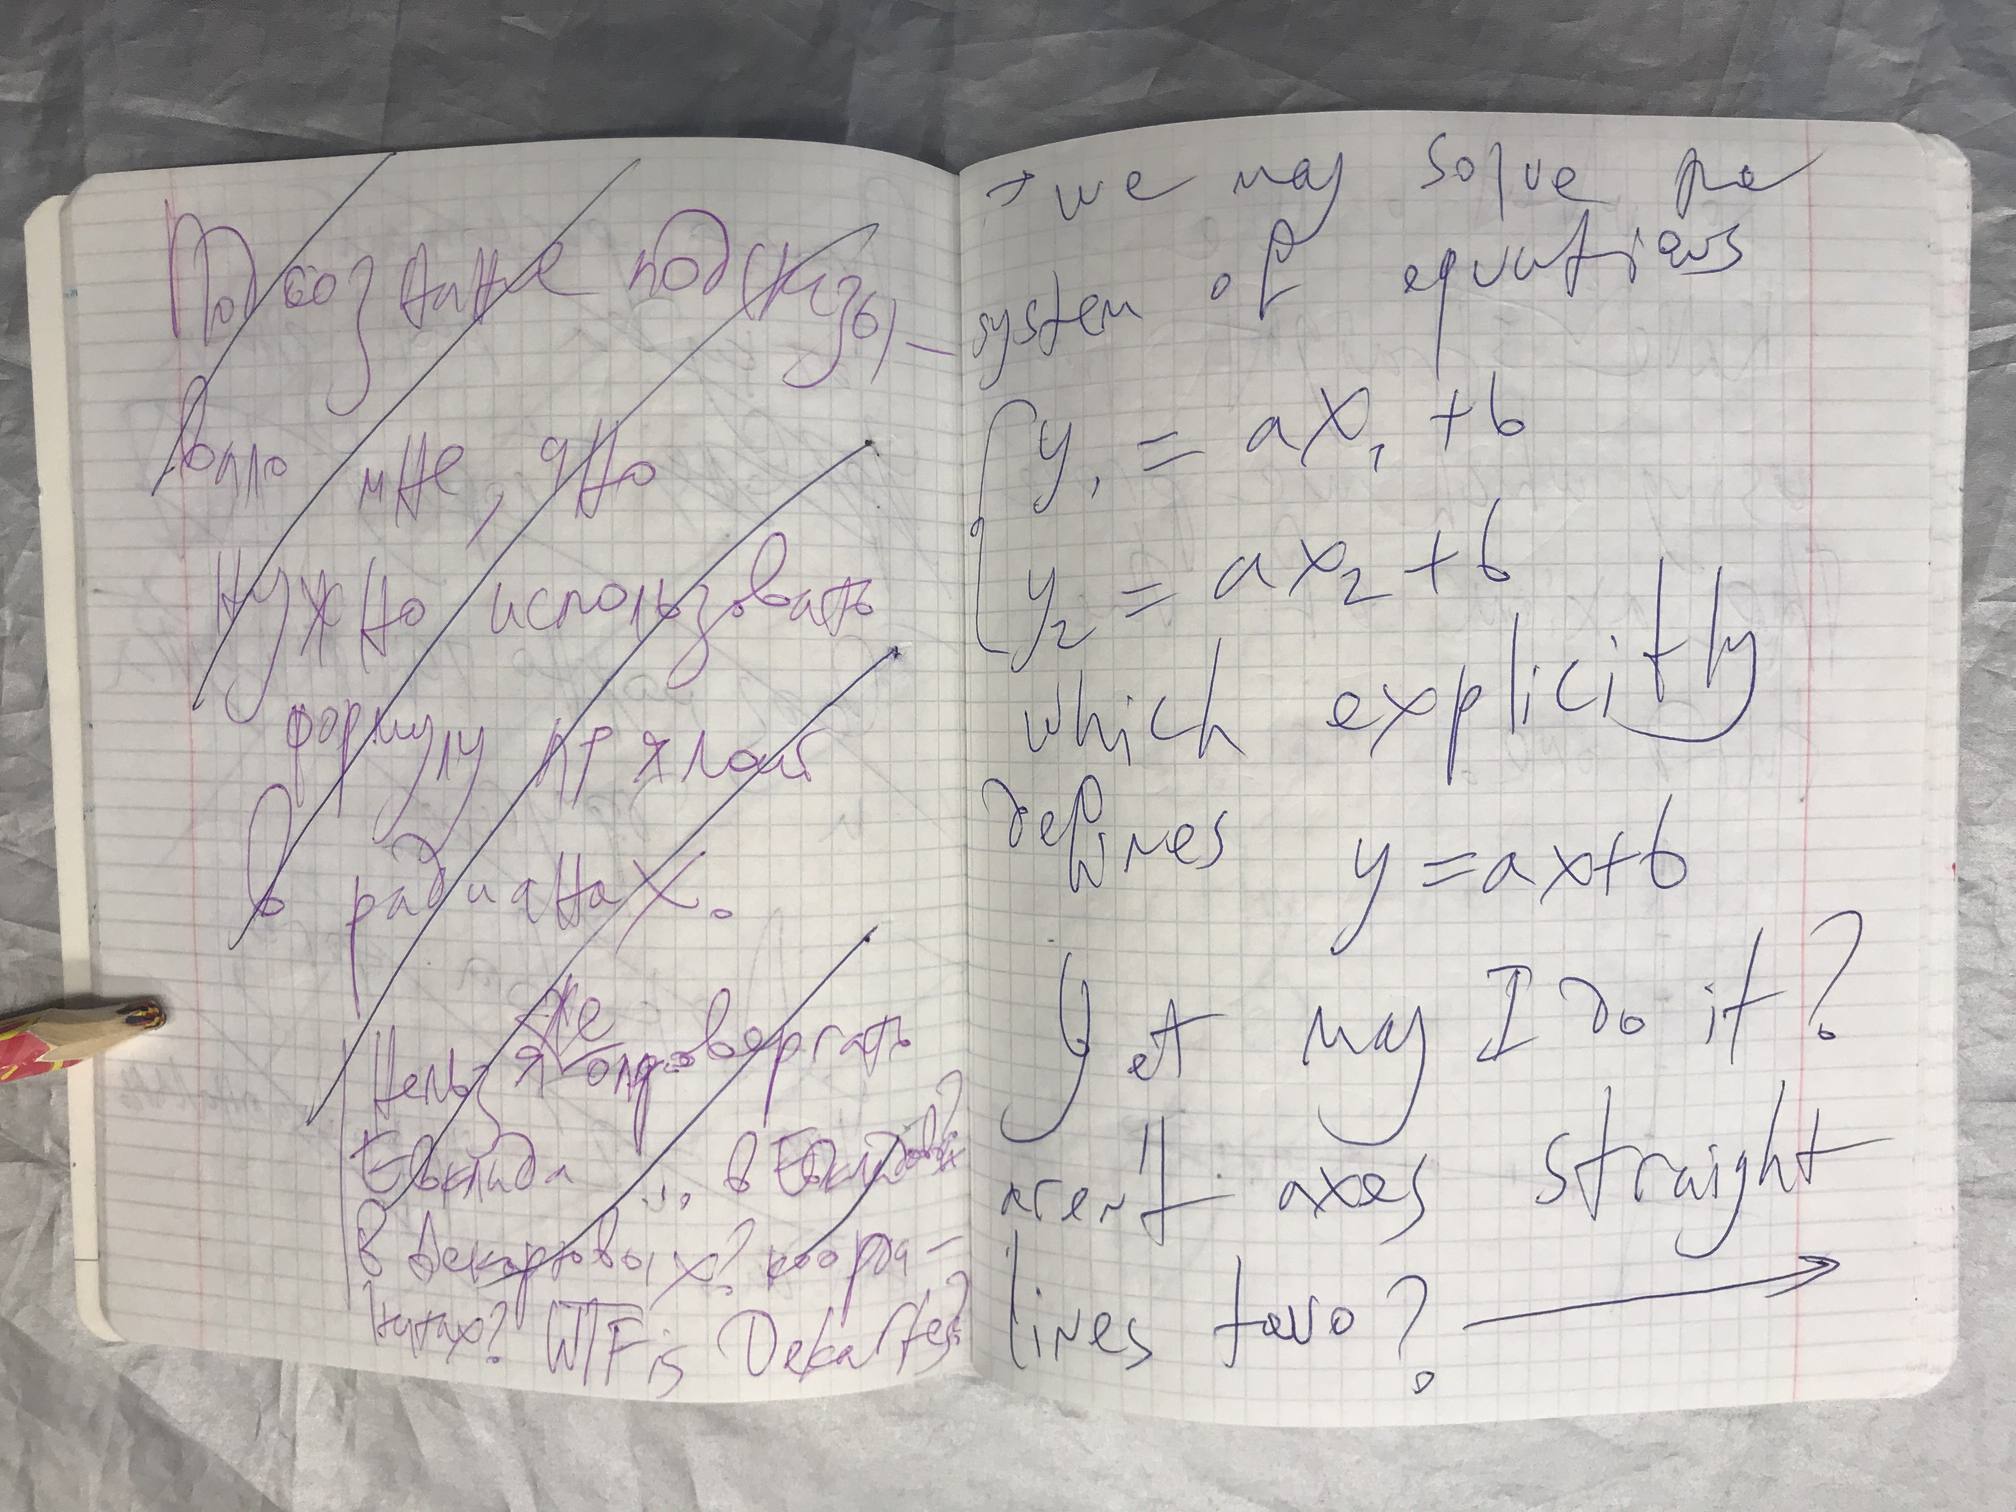 Подсознание подсказы-
вало мне, что
нужно использовать
формулу прямой
в радианах.
Нельзя же опровергать
Евклида ... в Евклидовых?
в Декартовых? коорди-
натах? WTF is Dekartes?
→ we may solve the
system of equations
y₁ = ax₁ + b
y₂ = ax₂ + b
which explicitly
defines y = ax+b
Yet may I do it?
aren't axes straight
lines two?